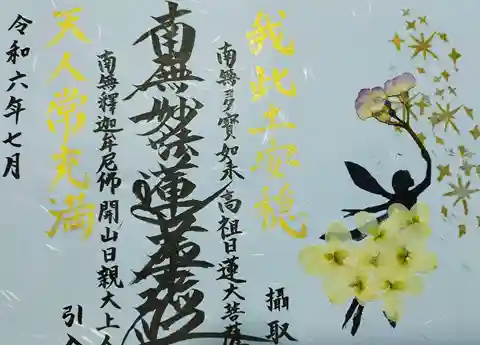 我此土安穏
南無多寶如来 高祖日蓮大菩薩
攝取
南無妙法蓮華経
南無釋迦牟尼佛 開山日親大上人
引入
天人常充満
令和六年七月